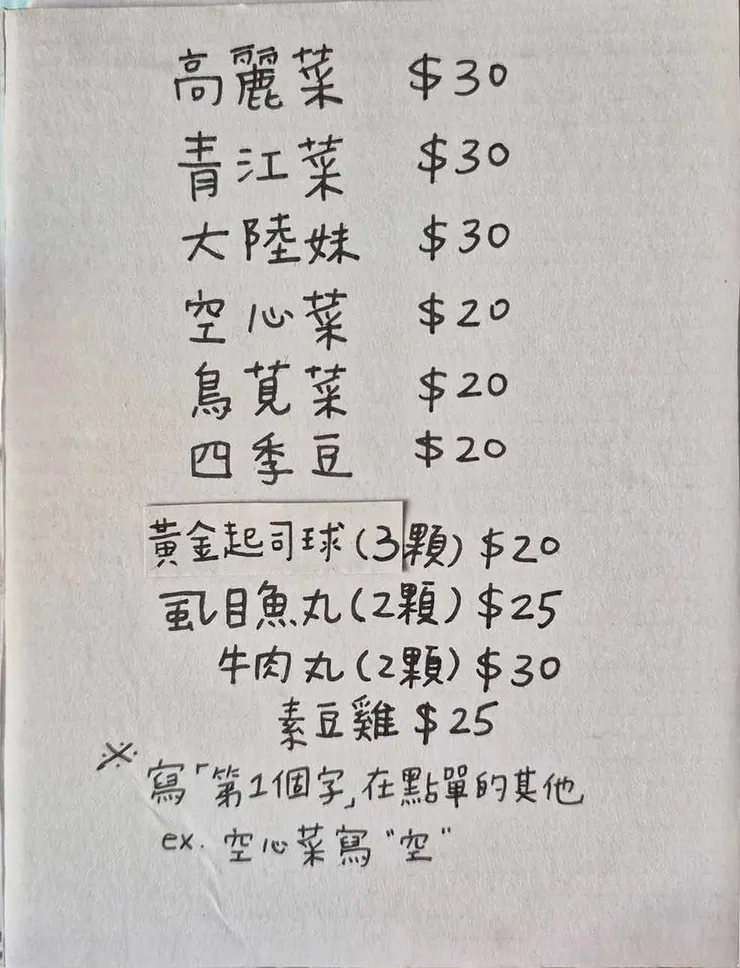 高麗菜 $30
青江菜 $30
大陸妹 $30
空心菜 $20
鳥莧菜 $20
四季豆 $20
黃金起司球(3顆) $20
虱目魚丸(2顆) $25
牛肉丸(2顆) $30
素豆雞 $25
※ 寫「第1個字」在點單的其他
ex. 空心菜寫"空"